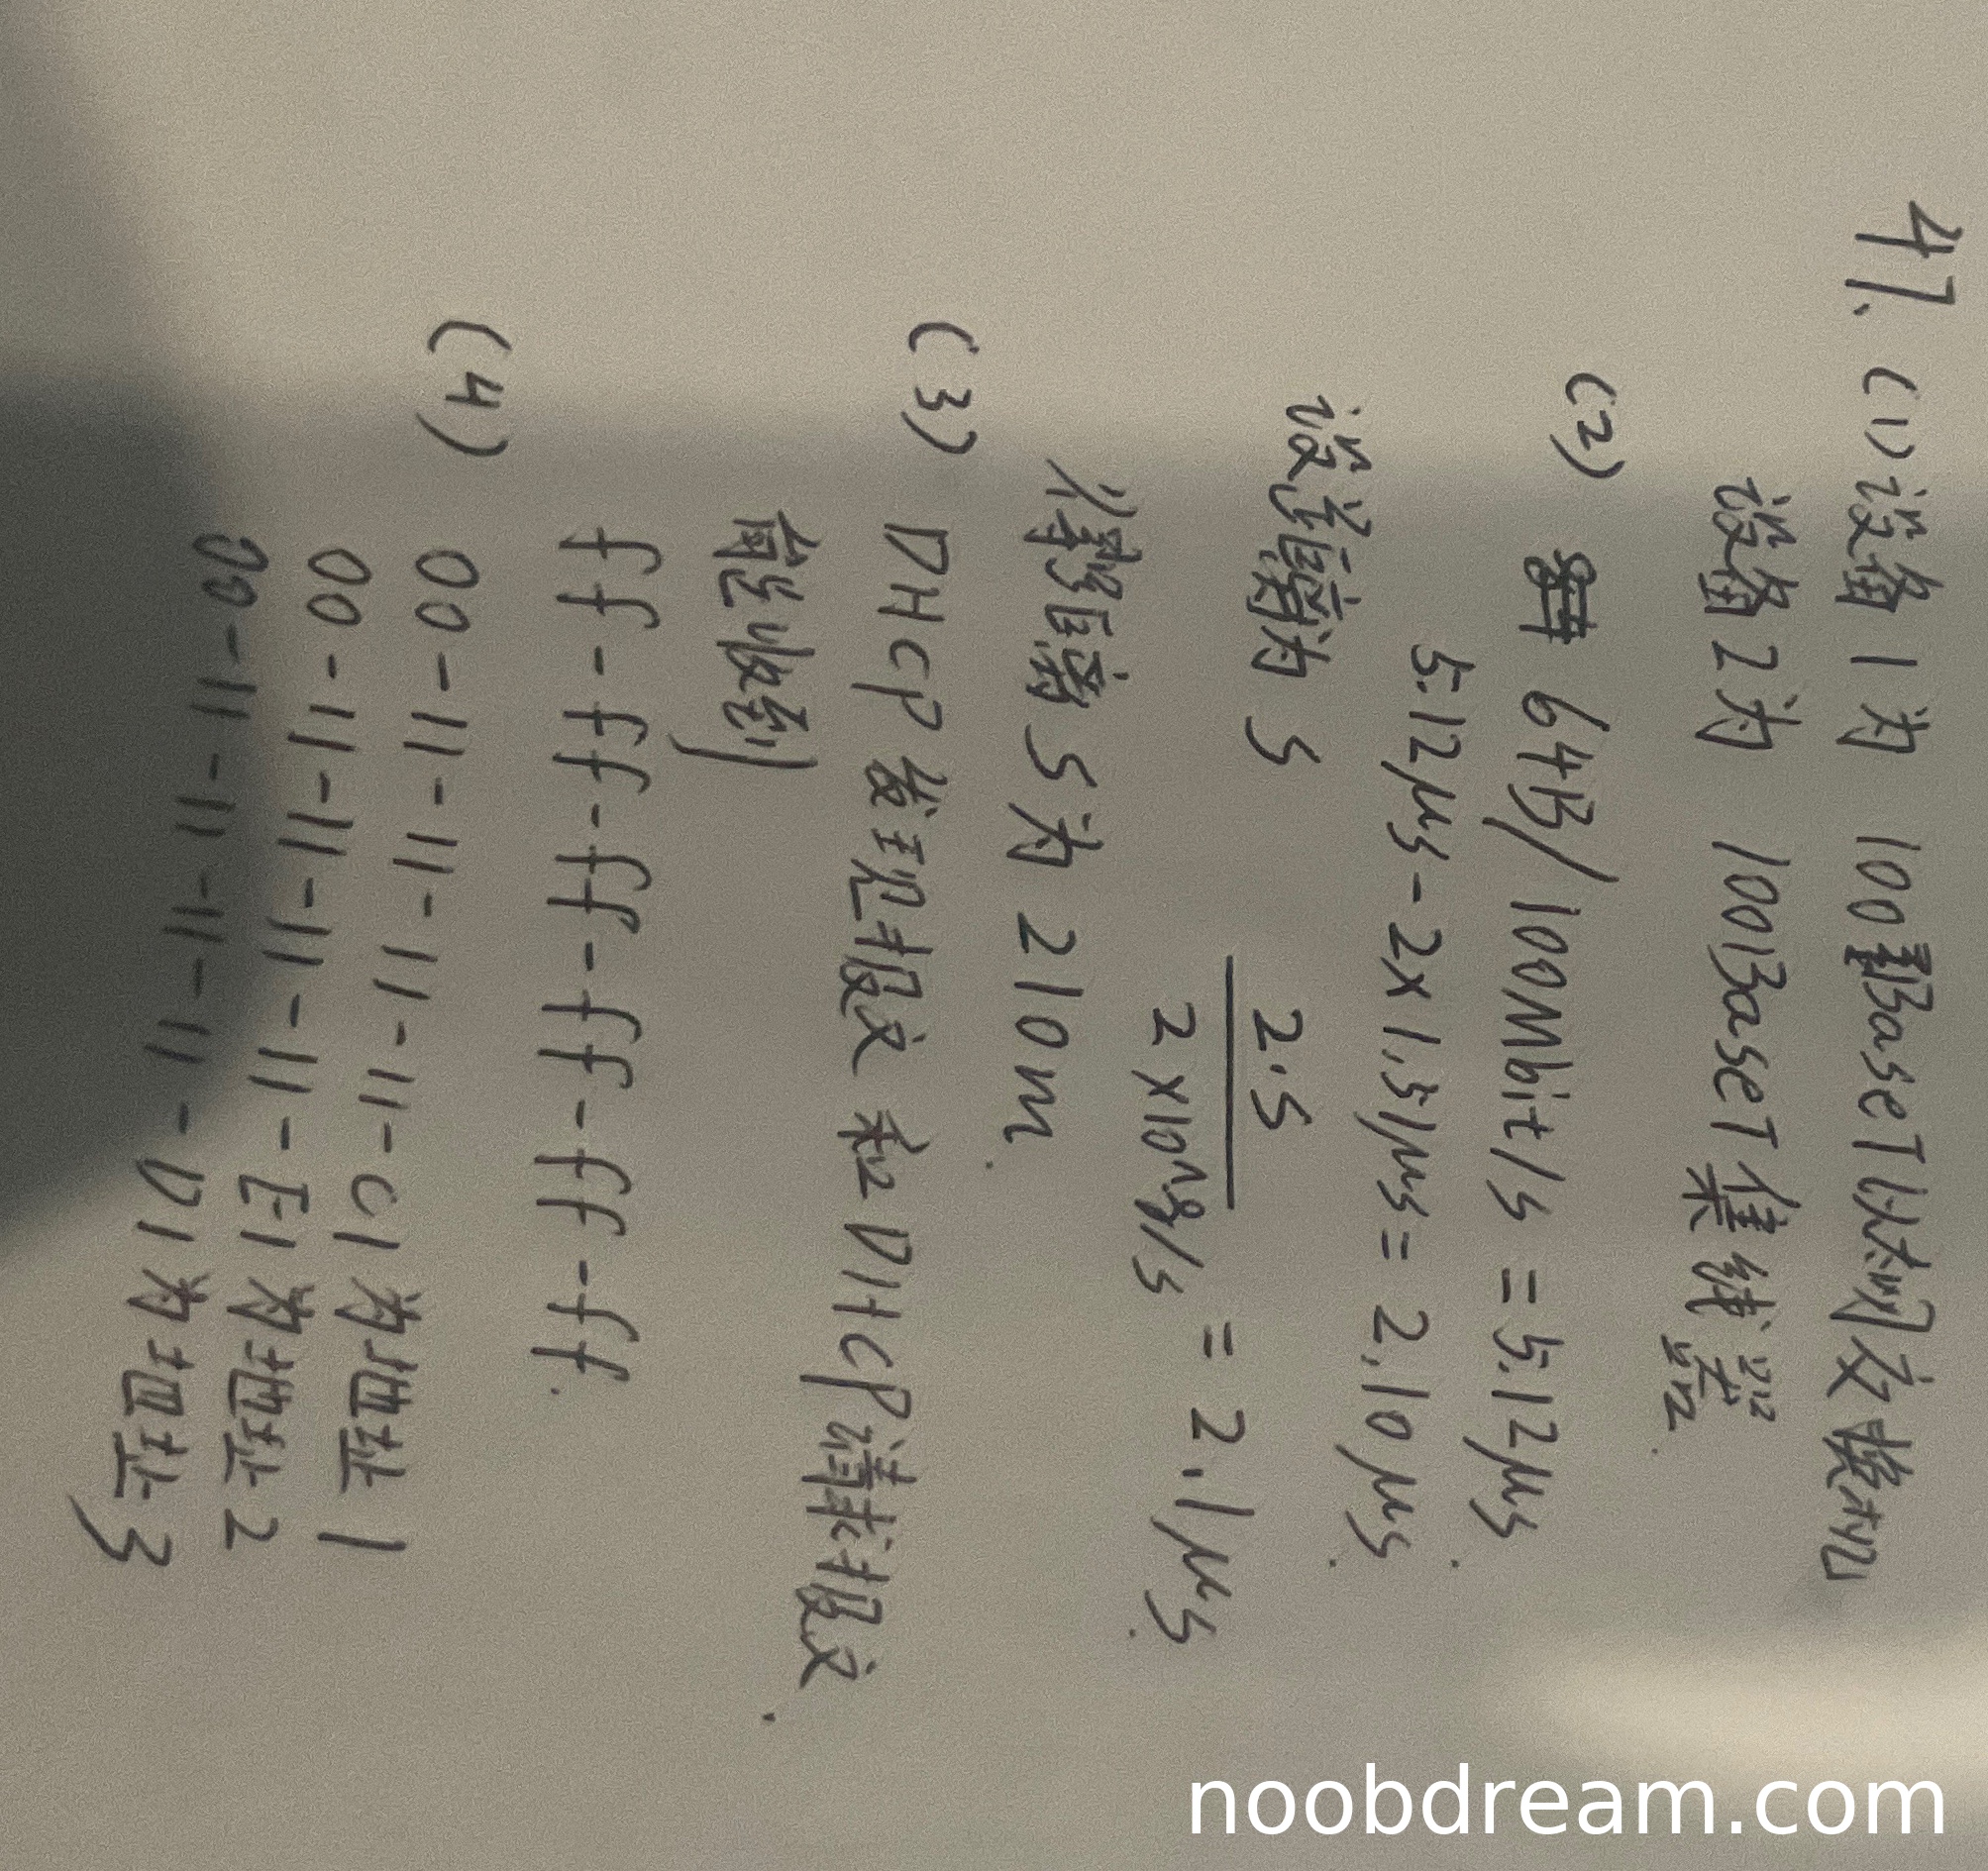 47. (1) 设备1为 100BaseT以太网交换机
设备2为 100BaseT集线器.
(2) 64B/100Mbit/s = 5.12μs.
5.12μs-2×1.51μs= 2.10μs.
设距离为S
2·S
2×10^8m/s = 2.1μs.
得距离S为210m.
(3) DHCP发现报文和DHCP请求报文.
能收到
ff-ff-ff-ff-ff-ff.
(4) 00-11-11-11-11-C1为地址1
00-11-11-11-11-E1为地址2
00-11-11-11-11-D1为地址3
noobdream.com